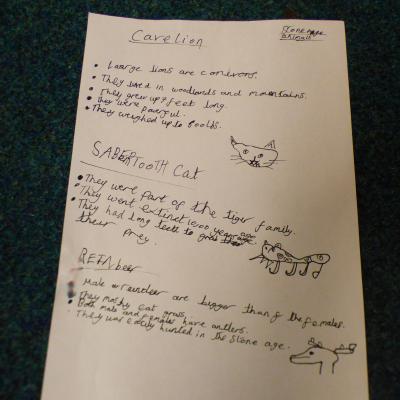 Stoneage
animals
Cavelion
Laarge lions are conivors.
They lived in woodlands and mountains.
They grew up 7 feet long.
They were powerful.
They weighed up to 800lbs.
SABERTOOTH Cat
They were part of the tiger family.
They went extinct 10,000 years ago
They had long teeth to grab
their prey.
REINdeer
Male reindeer are bigger than the females.
They mostly eat grass.
Both male and females have antlers.
They were easily hunted in the Stone age.